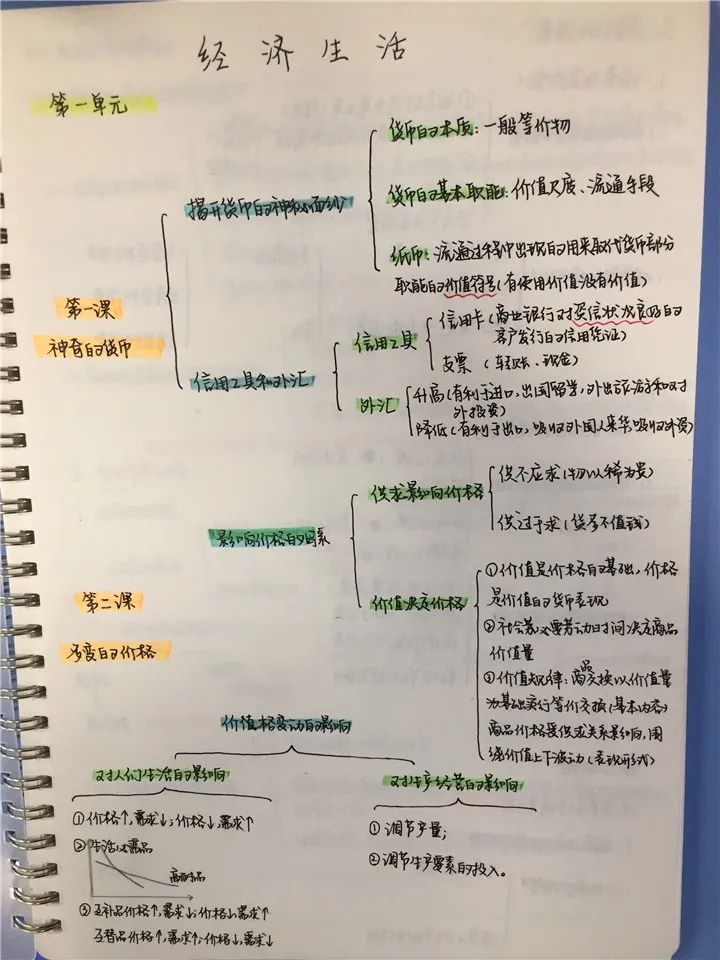 经济生活
第一单元
货币的本质：一般等价物
揭开货币的神秘面纱
货币的基本职能：价值尺度、流通手段
纸币：流通过程中出现的用来取代货币部分
职能的价值符号(有使用价值没有价值)
第一课
神奇的货币
信用工具和外汇
信用工具
信用卡(商业银行对资信状况良好的
客户发行的信用凭证)
支票 (转账、现金)
外汇
升高(有利于进口，出国留学，外出旅游和对
外投资)
降低(有利于出口，吸收外国人来华吸收外资)
影响价格的因素
供求影响价格
供不应求(物以稀为贵)
供过于求(货多不值钱)
第二课
多变的价格
价值决定价格
①价值是价格的基础，价格
是价值的货币表现
②社会劳必要劳动时间决定商品
价值量
③价值规律：商品交换以价值量
为基础实行等价交换(基本内容)
商品价格受供求关系影响，围
绕价值上下波动(表现形式)
价值格变动的影响
对人们生活的影响
①价格↑，需求↓；价格↓，需求↑
②生活必需品
高耐品
③互补品价格↑，需求↓；价格↓，需求↑
互替品价格↑，需求↑；价格↓，需求↓
对生产经营的影响
①调节产量；
②调节生产要素的投入。